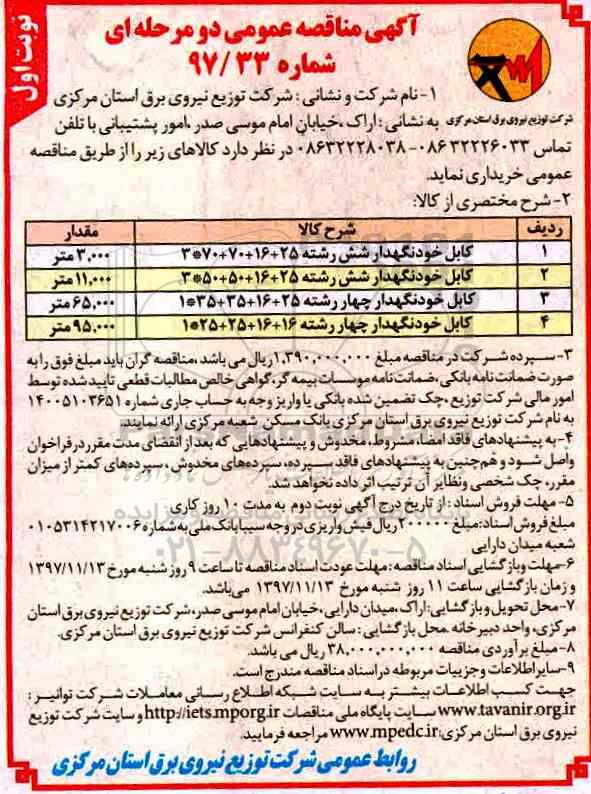 نوبت اول
آگهی مناقصه عمومی دو مرحله ای
شماره ۹۷/۳۳
شرکت توزیع نیروی برق استان مرکزی
۱- نام شرکت و نشانی : شرکت توزیع نیروی برق استان مرکزی
به نشانی : اراک ،خیابان امام موسی صدر ،امور پشتیبانی با تلفن
تماس ۰۸۶۳۲۲۲۶۰۳۳-۰۸۶۳۲۲۲۸۰۳۸ در نظر دارد کالاهای زیر را از طریق مناقصه
عمومی خریداری نماید.
۲- شرح مختصری از کالا:
ردیف شرح کالا مقدار
۱ کابل خودنگهدار شش رشته ۲۵+۱۶+۷۰+۷۰*۳ ۳,۰۰۰ متر
۲ کابل خودنگهدار شش رشته ۲۵+۱۶+۵۰+۵۰*۳ ۱۱,۰۰۰ متر
۳ کابل خودنگهدار چهار رشته ۲۵+۱۶+۳۵+۳۵*۱ ۶۵,۰۰۰ متر
۴ کابل خودنگهدار چهار رشته ۱۶+۱۶+۲۵+۲۵*۱ ۹۵,۰۰۰ متر
۳- سپرده شرکت در مناقصه مبلغ ۱,۳۹۰,۰۰۰,۰۰۰ ریال می باشد ،مناقصه گران باید مبلغ فوق را به
صورت ضمانت نامه بانکی ،ضمانت نامه موسسات بیمه گر، گواهی خالص مطالبات قطعی تایید شده توسط
امور مالی شرکت توزیع ،چک تضمین شده بانکی یا واریز وجه به حساب جاری شماره ۱۴۰۰۵۱۰۳۶۵۱
به نام شرکت توزیع نیروی برق استان مرکزی بانک مسکن شعبه مرکزی ارائه نمایند.
۴- به پیشنهادهای فاقد امضا، مشروط، مخدوش و پیشنهادهایی که بعد از انقضای مدت مقرر در فراخوان
واصل شود و هم چنین به پیشنهادهای فاقد سپرده، سپرده‌های مخدوش ، سپرده‌های کمتر از میزان
مقرر، چک شخصی و نظایر آن ترتیب اثر داده نخواهد شد.
۵- مهلت فروش اسناد : از تاریخ درج آگهی نوبت دوم به مدت ۱۰ روز کاری
مبلغ فروش اسناد: مبلغ ۲۰۰۰۰۰ ریال فیش واریزی در وجه سیبا بانک ملی به شماره ۰۱۰۵۳۱۴۲۱۷۰۰۶
شعبه میدان دارایی
۰۲۱-۸۸۳۴۹۶۷۰-۵
۶-مهلت و بازگشایی اسناد مناقصه : مهلت عودت اسناد مناقصه تا ساعت ۹ روز شنبه مورخ ۱۳۹۷/۱۱/۱۳
و زمان بازگشایی ساعت ۱۱ روز شنبه مورخ ۱۳۹۷/۱۱/۱۳ می‌باشد.
۷- محل تحویل و بازگشایی: اراک ،میدان دارایی ،خیابان امام موسی صدر، شرکت توزیع نیروی برق استان
مرکزی، واحد دبیرخانه .محل بازگشایی : سالن کنفرانس شرکت توزیع نیروی برق استان مرکزی.
۸- مبلغ برآوردی مناقصه ۳۸,۰۰۰,۰۰۰,۰۰۰ ریال می باشد.
۹- سایر اطلاعات و جزییات مربوطه در اسناد مناقصه مندرج است.
جهت کسب اطلاعات بیشتر به سایت شبکه اطلاع رسانی معاملات شرکت توانیر :
www.tavanir.org.ir سایت پایگاه ملی مناقصات http://iets.mporg.ir و سایت شرکت توزیع
نیروی برق استان مرکزی: www.mpedc.ir مراجعه فرمایید.
روابط عمومی شرکت توزیع نیروی برق استان مرکزی